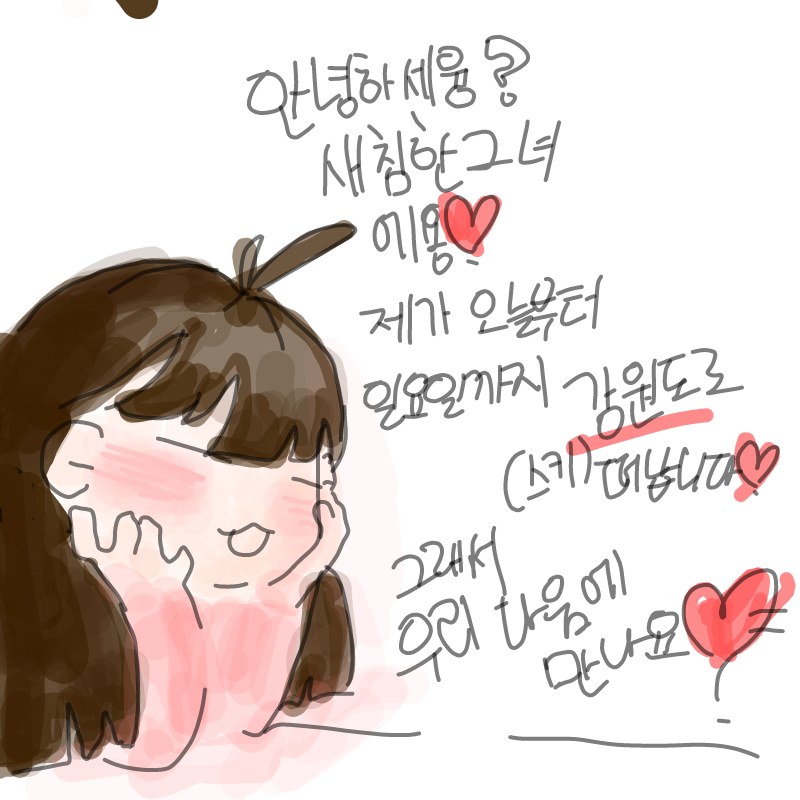 안녕하세융?
새침한그녀
에용♥
제가 오늘부터
일요일까지 강원도로
(스키) 떠납니다♥
그래서
우리 다음에
만나요♥